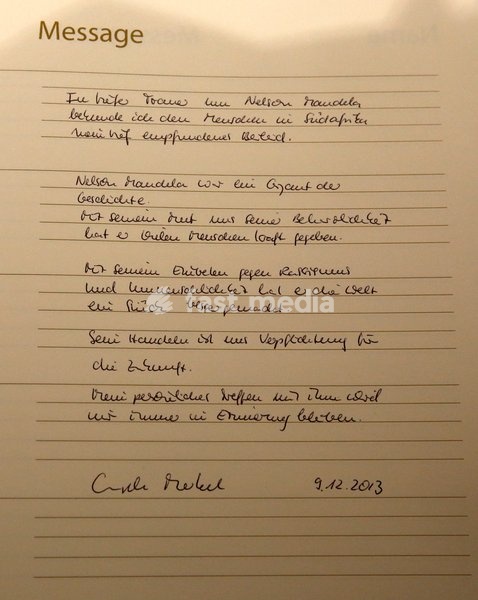 Message
In tiefer Trauer um Nelson Mandela
bekunde ich den Menschen in Südafrika
mein tief empfundenes Beileid.
Nelson Mandela war ein Gigant der
Geschichte.
Mit seinem Mut und seiner Beharrlichkeit
hat er vielen Menschen Kraft gegeben.
Mit seinem Eintreten gegen Rassismus
und Unmenschlichkeit hat er die Welt
ein Stück besser gemacht.
fast.media
Sein Handeln ist uns Verpflichtung für
die Zukunft.
Mein persönliches Treffen mit ihm wird
mir immer in Erinnerung bleiben.
Angela Merkel 9.12.2013